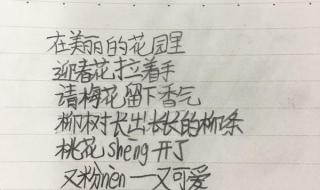 在美丽的花园里
迎春花拉着手
请梅花留下香气
柳树长出长长的柳条
桃花shèng开了
又粉nèn一又可爱